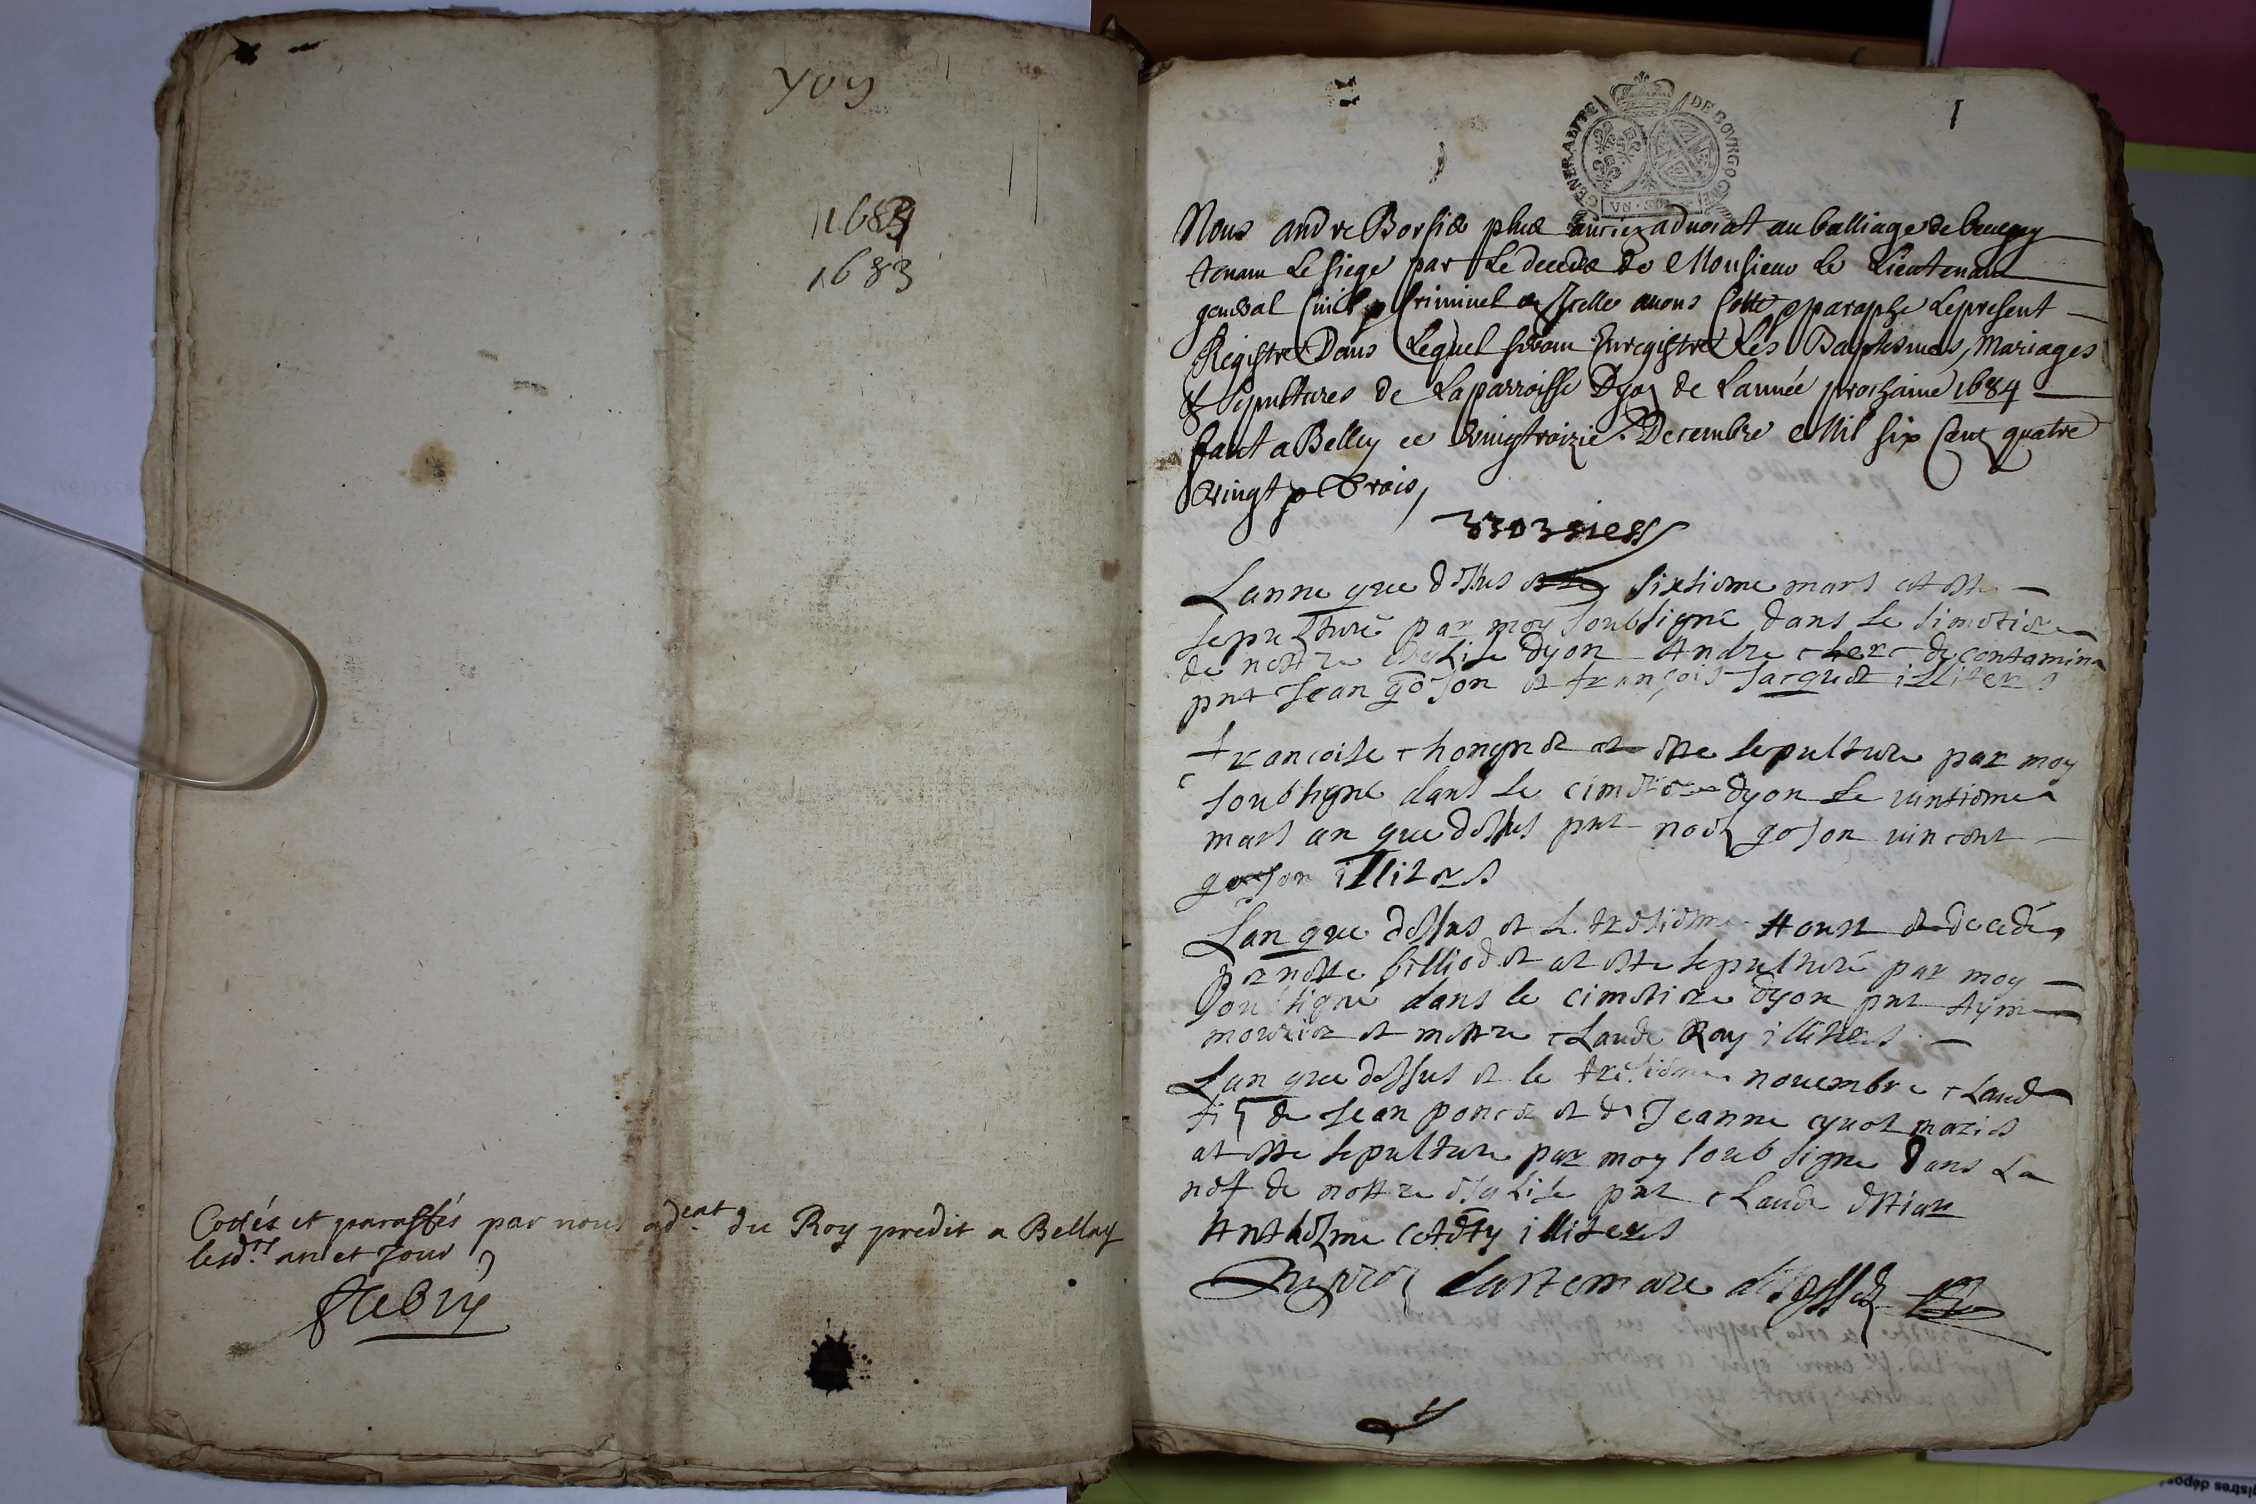 yon
1684
1683
Cottés et paraffés par nous adcat du Roy predit a Belley
lesd. an et Jour
I
GENERALITE DE BOVRGOGNE
Nous andre Borsie plus ancien advocat au balliage de beugey
tenant Le siege par Le deceds de Monsieur Le Lieutenant
general Civil & Criminel en Icelle avons Cotte & paraphe Lepresent
Registre Dans Lequel seront Enregistre Les Baptesmes, Mariages
& Sepultures de Laparroisse Dyon de Lannée prochaine 1684
faict a Belley ce vingtroizie. Decembre Mil six Cent quatre
vingt & Trois,
Lanne que dessus et le sixsieme mars at este
sepulturé par moy soubsigné dans Le simetiere
de nostre Esglise dyon Andre cherc de contamina
pnt Jean goJon et françois Jacquet illiters
francoise chongnet at este sepulture par moy
soubsigne dans le cimetiere dyon Le vintieme
mars an que dessus pnt noel goJon vincent
goJon illiters
Lan que dessus et le tresieme Aoust et decedé
pernette billiodet at este sepulturé par moy
soubsigné dans le cimetiere dyon pnt Ayme
mourier et mettre claude Roy illiters
Lan que dessus et le tresieme novembre claude
fil de Jean poncet et de Jeanne cyvot maries
at este sepulture par moy soubsigne dans La
nef de nostre esglise pnt claude
Anthelme illiters